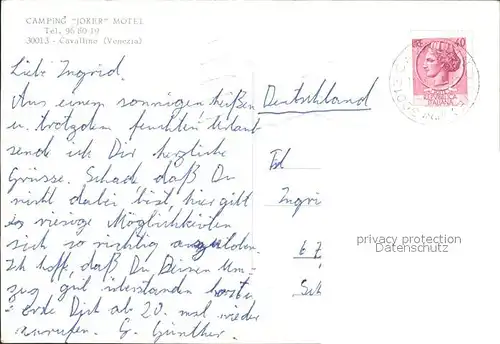 CAMPING "JOKER" MOTEL
Tel. 96 80 19
30013 - Cavallino (Venezia)
Liebe Ingrid.
Aus einem sonnigen heißen
u. trotzdem feuchten Urlaub
sende ich Dir herzliche
Grüsse. Schade daß Du
nicht dabei bist, hier gibt
es riesige Möglichkeiten
sich so richtig
Ich hoffe, daß Du Deinen Um-
zug gut überstanden hast
Dich ab 20. mal wieder
anrufen. G. Günther.
LIRE 40
ITALIANA
Deutschland
Frl
Ingri
privacy protection
Datenschutz